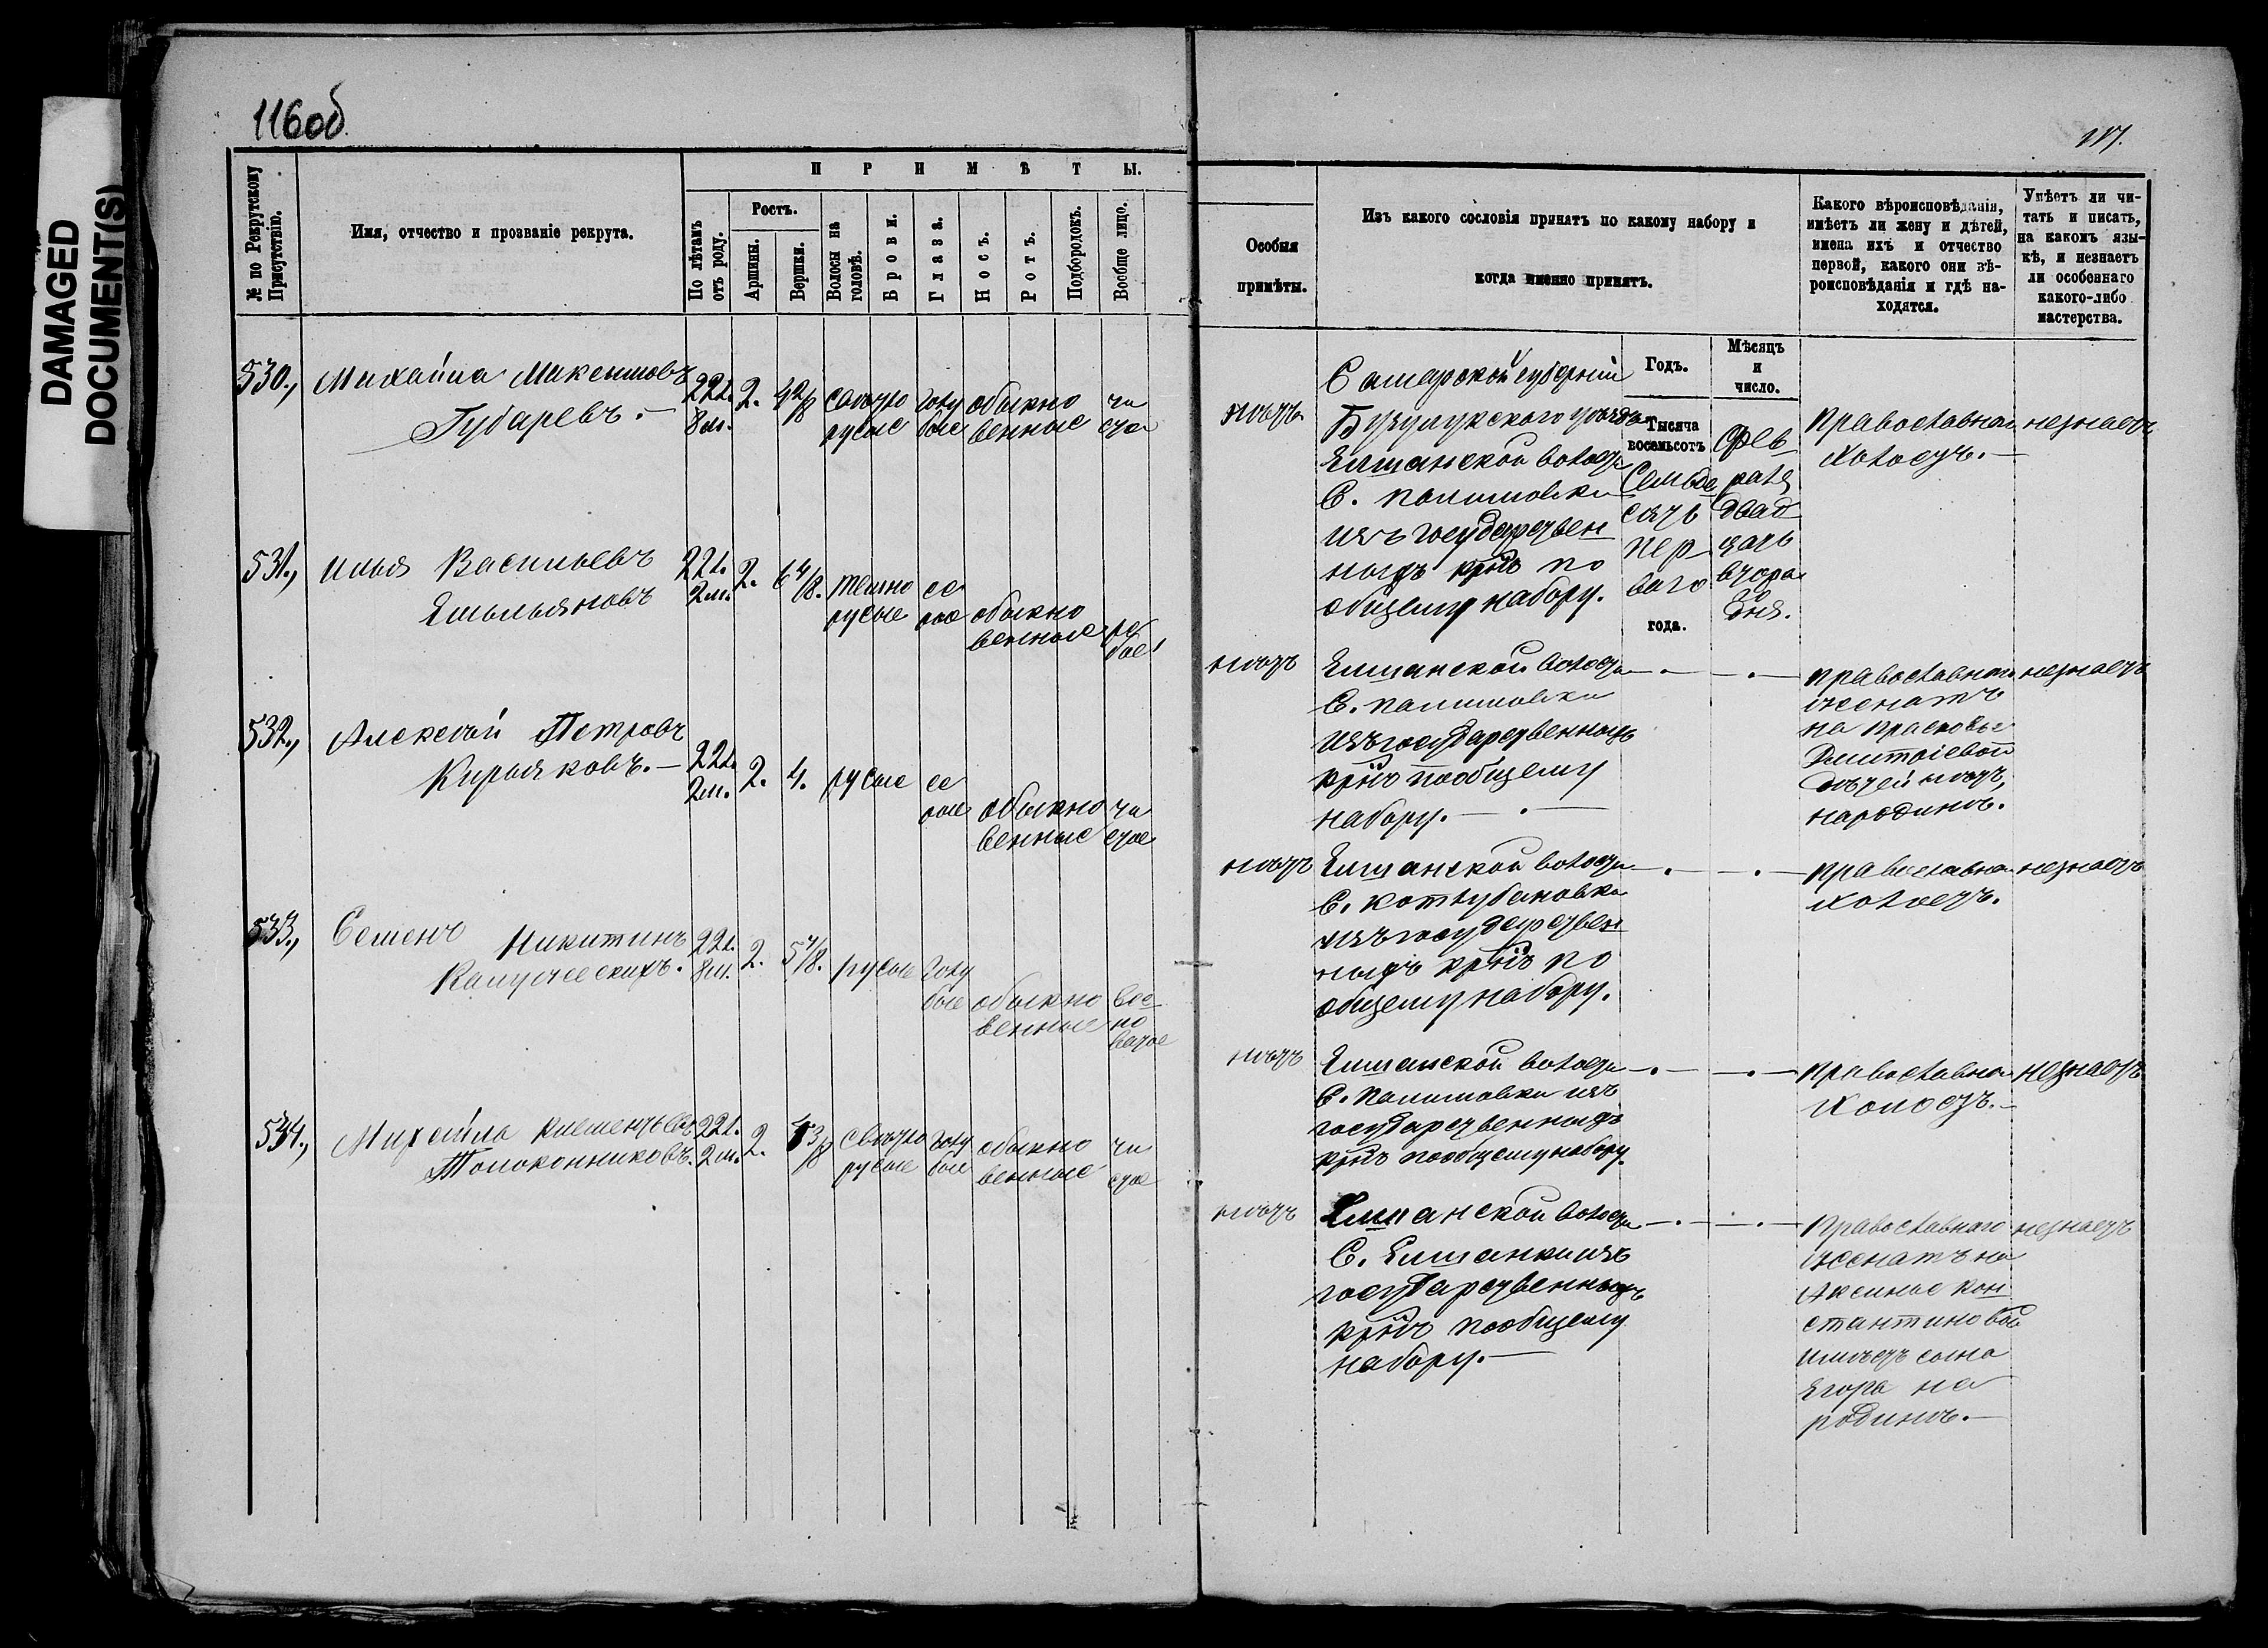 DAMAGED
DOCUMENT(S)
116об
117.
№ по Рекрутскому
Присутствію.
Имя, отчество и прозваніе рекрута.
ПРИМѢТЫ.
По лѣтамъ
отъ роду.
Ростъ.
Аршины.
Вершки.
Волосы на
головѣ.
Брови.
Глаза.
Носъ.
Ротъ.
Подбородокъ.
Вообще лицо.
Особыя
примѣты.
Изъ какого сословія принятъ по какому набору и
когда именно принятъ.
Какого вѣроисповѣданія,
имѣетъ ли жену и дѣтей,
имена ихъ и отчество
первой, какого они вѣ-
роисповѣданія и гдѣ на-
ходятся.
Умѣетъ ли чи-
тать и писать,
на какомъ язы-
кѣ, и незнаетъ
ли особеннаго
какого-либо
мастерства.
530., Михайла Максимовъ
Губаревъ.—
22л.
8м.
2.
4 2/8
свѣтло
русые
голу
бые
обыкно
венные
чи
стое
нѣтъ
Самарской губерніи
Бузулукского уѣзда
Елшанской волости
С. Палимовки
изъ государствен
ныхъ крнъ по
общему набору.
Годъ.
Тысяча
восемьсотъ
Семьде
сятъ
пер
ваго
года.
Мѣсяцъ
и
число.
Фев
раля
двад
цать
втора
го
дня.
Православнаго
холостъ.—
незнаетъ
531., Илья Васильевъ
Емельяновъ
22л.
2м.
2.
6 4/8.
темно
русые
се
рые
обыкно
венные
ря
бое
нѣтъ
Елшанской волости
С. Палимовки
изъ государственныхъ
крнъ пообщему
набору.—
православнаго
женатъ
на Прасковье
Дмитріевой
дѣтей нѣтъ,
народинѣ.
незнаетъ
532., Алексѣй Петровъ
Кирьяковъ.—
22л.
2м.
2.
4.
русые
се
рые
обыкно
венные
чи
стое
нѣтъ
Елшанской волости
С. Колтубановки
изъ государствен
ныхъ крнъ по
общему набору.
православна
холостъ.
незнаетъ
533., Семенъ Никитинъ
22л.
8м.
2.
5 4/8.
русые
голу
бые
обыкно
венные
вес
но
ватое
нѣтъ
Елшанской волости
С. Палимовки изъ
государственныхъ
крнъ пообщему набору.
Православна
Холостъ.—
незнаетъ
534., Михайла Клементьевъ
Толоконниковъ.
22л.
2м.
2.
3/8
свѣтло
русые
голу
бые
обыкно
венные
чи
стое
нѣтъ
Елшанской волости
С. Елшанки изъ
государственныхъ
крнъ пообщему
набору.—
Православнаго
женатъ на
Аксинье Кон
стантиновой
имѣетъ сына
Егора на
родинѣ.—
незнаетъ